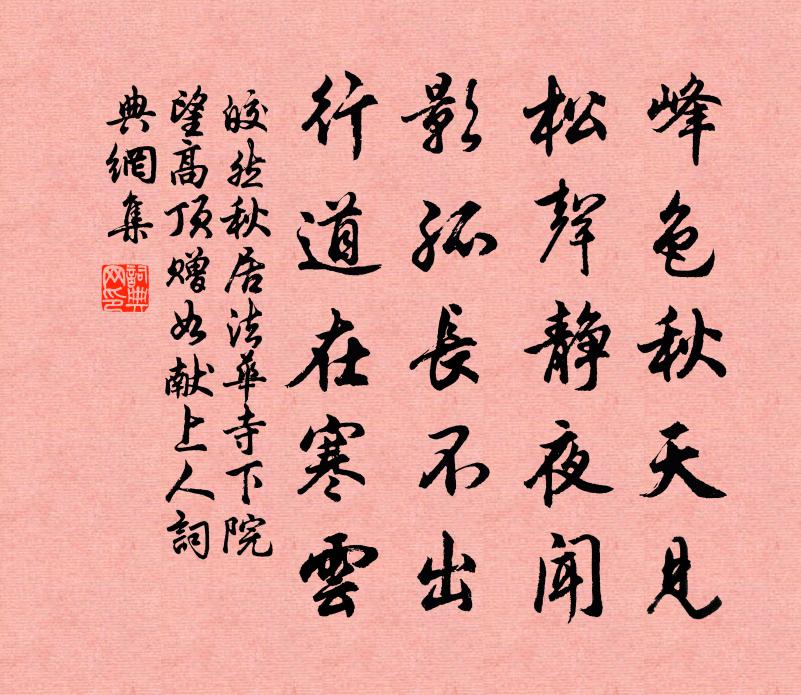 峰色秋天見
松聲靜夜聞
影孤長不出
行道在寒雲
皎然秋居法華寺下院
望高頂贈如献上人詞
典網集
詞典網印